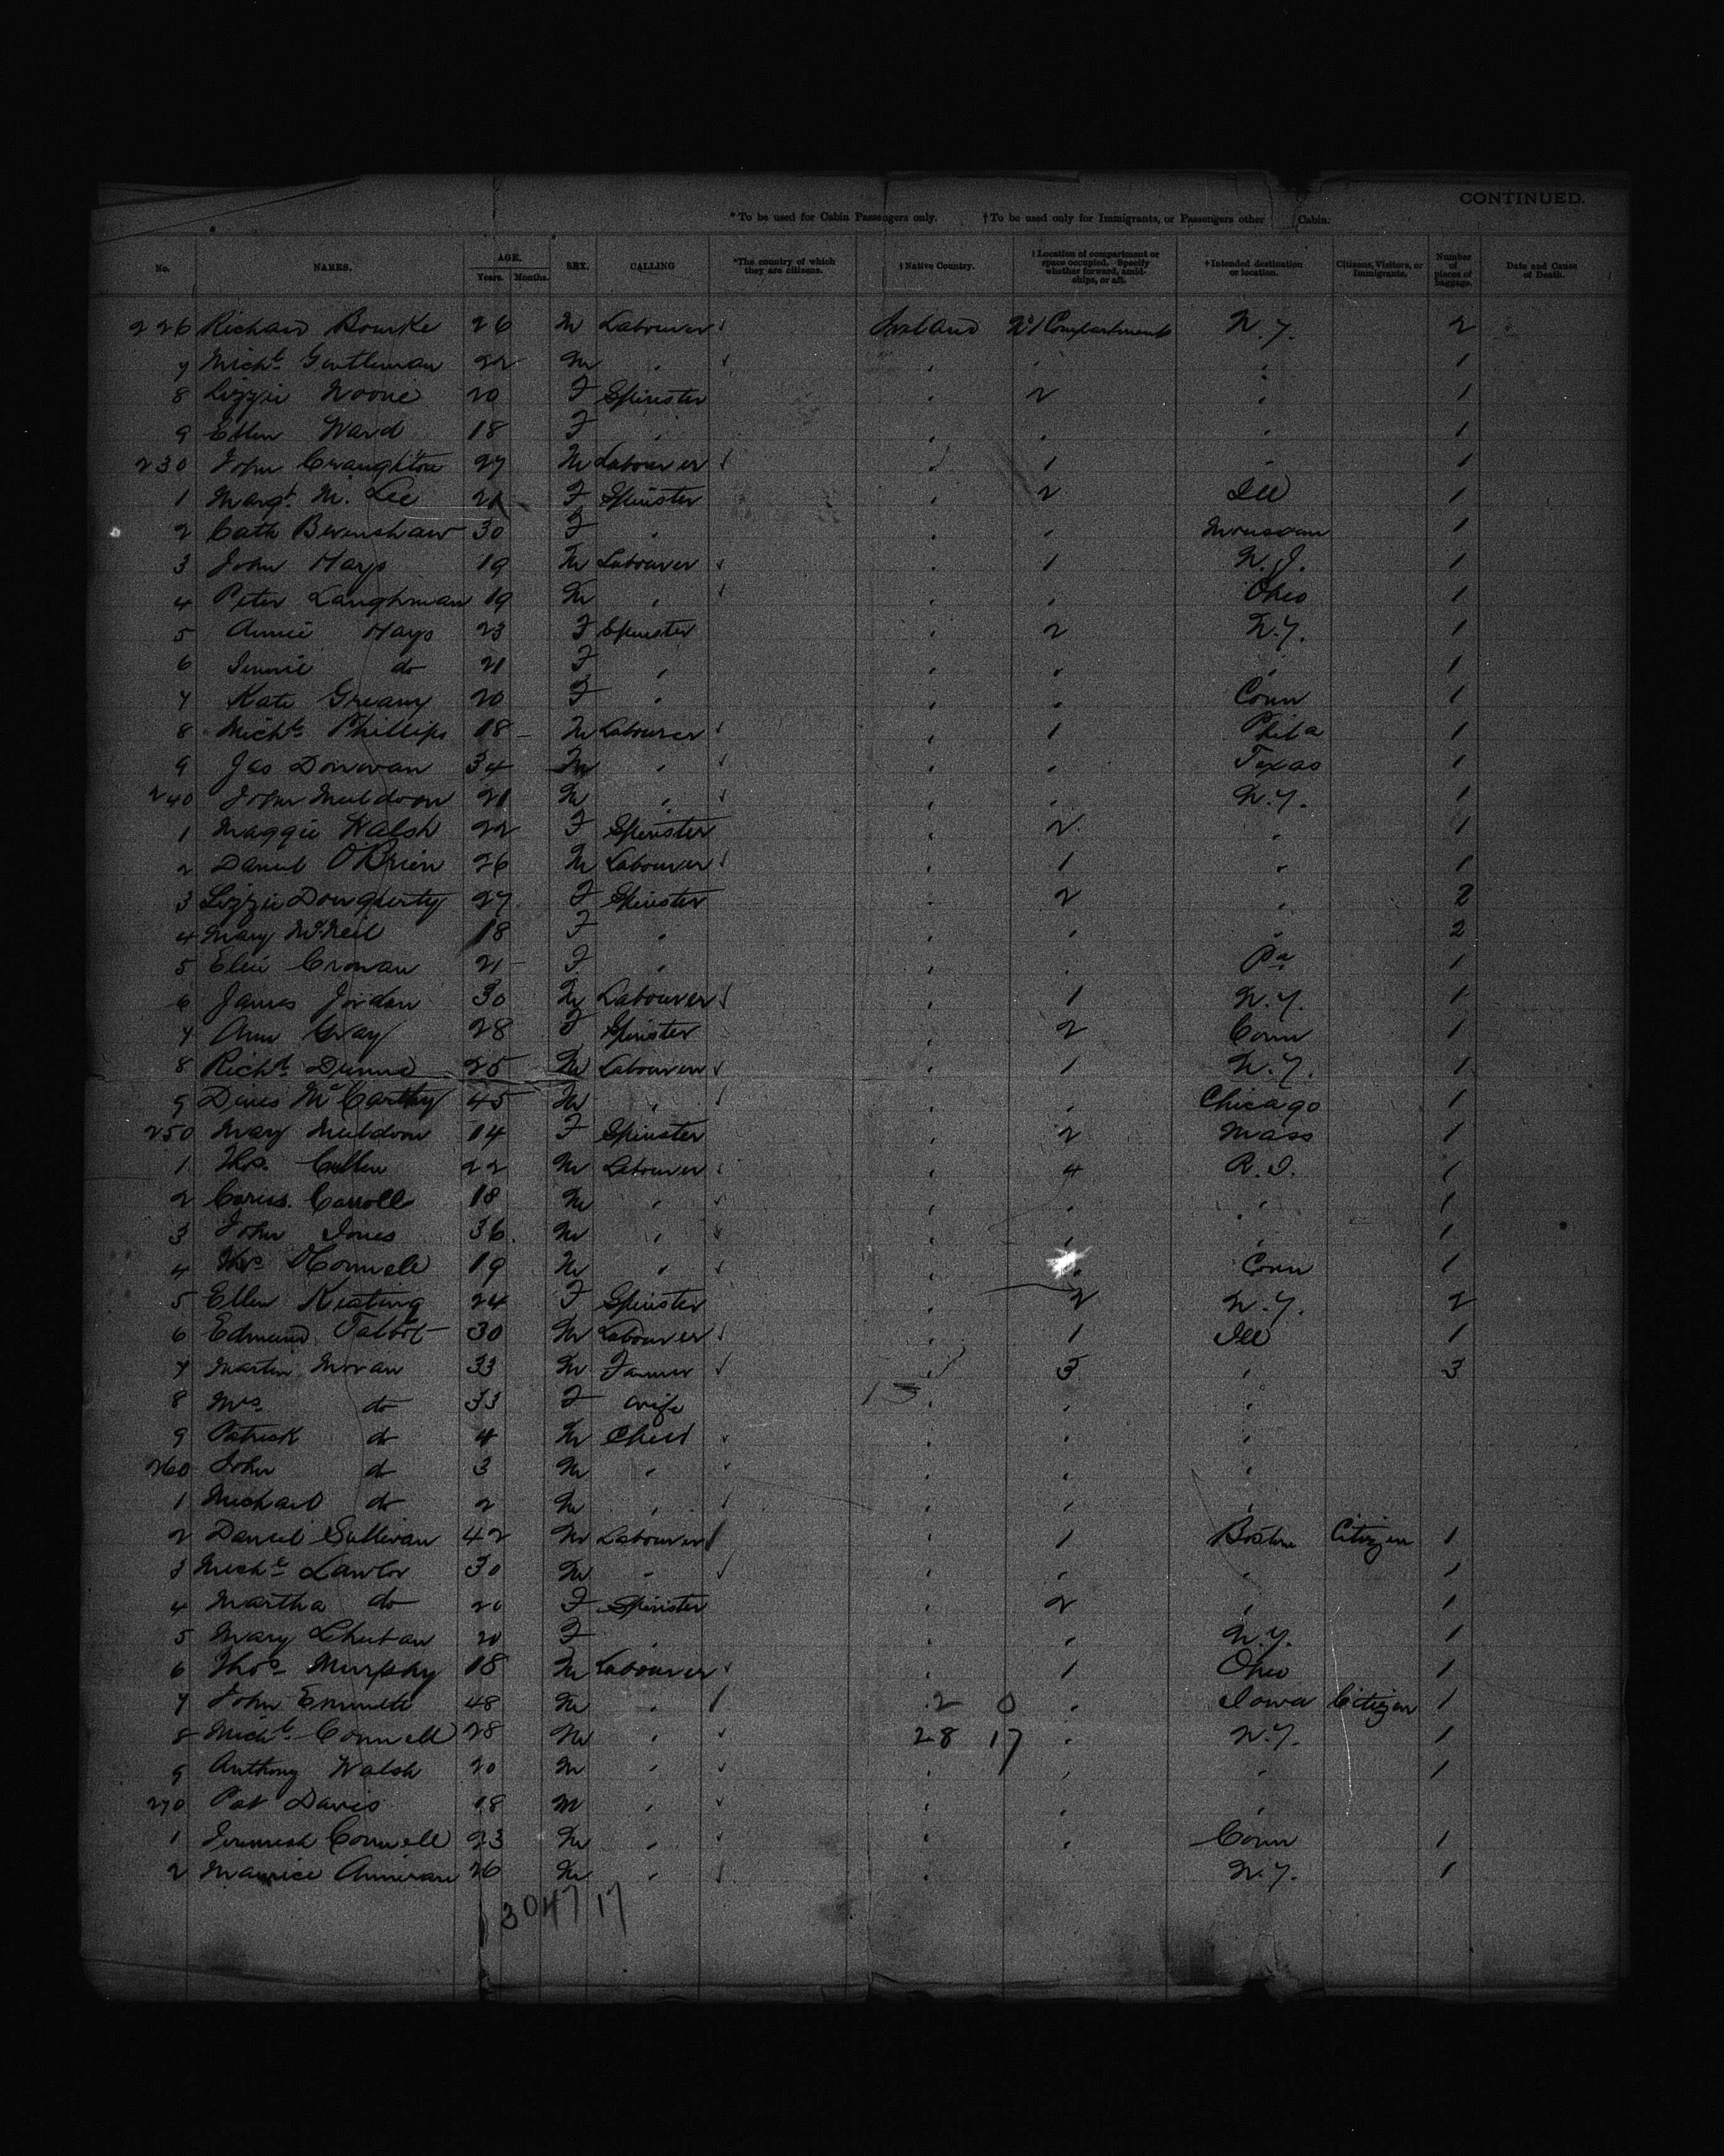 CONTINUED.
*To be used for Cabin Passengers only. †To be used only for Immigrants, or Passengers other Cabin.
No. NAMES. AGE. Years. Months. SEX. CALLING *The country of which they are citizens. †Native Country. †Location of compartment or space occupied. Specify whether forward, amidships, or aft. †Intended destination or location. Citizens, Visitors, or Immigrants. Number of pieces of baggage. Date and Cause of Death.
226 Richard Bourke 26 M Labourer Ireland No 1 Compartment N.Y. 2
7 Michl Gentleman 22 M " " " " 1
8 Lizzie Noone 20 F Spinster " 2 " 1
9 Ellen Ward 18 F " " " " 1
230 John Craughton 27 M Labourer " 1 " 1
1 Margt M. Lee 21 F Spinster " 2 Ill 1
2 Cath Berenshaw 30 F " " " 1
3 John Hays 19 M Labourer " 1 N.J. 1
4 Peter Laughman 19 M " " " Ohio 1
5 Annie Hays 23 F Spinster " 2 N.Y. 1
6 Jennie do 21 F " " " " 1
7 Kate Greany 20 F " " " Conn 1
8 Michl Phillips 18 M Labourer " 1 Phila 1
9 Jas Donovan 34 M " " " Texas 1
240 John Muldoon 21 M " " " N.Y. 1
1 Maggie Walsh 22 F Spinster " 2 " 1
2 Daniel O'Brien 26 M Labourer " 1 " 1
3 Lizzie Dougherty 27 F Spinster " 2 " 2
4 Mary McNeil 18 F " " " " 2
5 Ellie Cronan 21 F " " " Pa 1
6 James Jordan 30 M Labourer " 1 N.Y. 1
7 Ann Gray 28 F Spinster " 2 Conn 1
8 Richd Dunne 25 M Labourer " 1 N.Y. 1
9 Denis McCarthy 45 M " " " Chicago 1
250 Mary Muldoon 14 F Spinster " 2 Mass 1
1 Thos. Cullen 22 M Labourer " 4 R.I. 1
2 Carroll 18 M " " " " 1
3 John Jones 36 M " " " " 1
4 Thos O'Connell 19 M " " " Conn 1
5 Ellen Keating 24 F Spinster " 2 N.Y. 2
6 Edmund Talbot 30 M Labourer " 1 Ill 1
7 Martin Moran 33 M Farmer " 3 " 3
8 Mrs do 33 F wife " " "
9 Patrick do 4 M Child " " "
260 John do 3 M " " " "
1 Michael do 2 M " " " "
2 Daniel Sullivan 42 M Labourer " 1 Boston Citizen 1
3 Michl Lawlor 30 M " " " " 1
4 Martha do 20 F Spinster " 2 " 1
5 Mary 20 F " " " N.Y. 1
6 Thos Murphy 18 M Labourer " 1 Ohio 1
7 John Emmett 48 M " 2 0 " Iowa Citizen 1
8 Michl Connell 28 M " 28 17 " N.Y. 1
9 Anthony Walsh 20 M " " " " 1
270 Pat Davis 18 M " " " "
1 Jeremiah Connell 23 M " " " Conn 1
2 Maurice 26 M " " N.Y. 1
3047 17